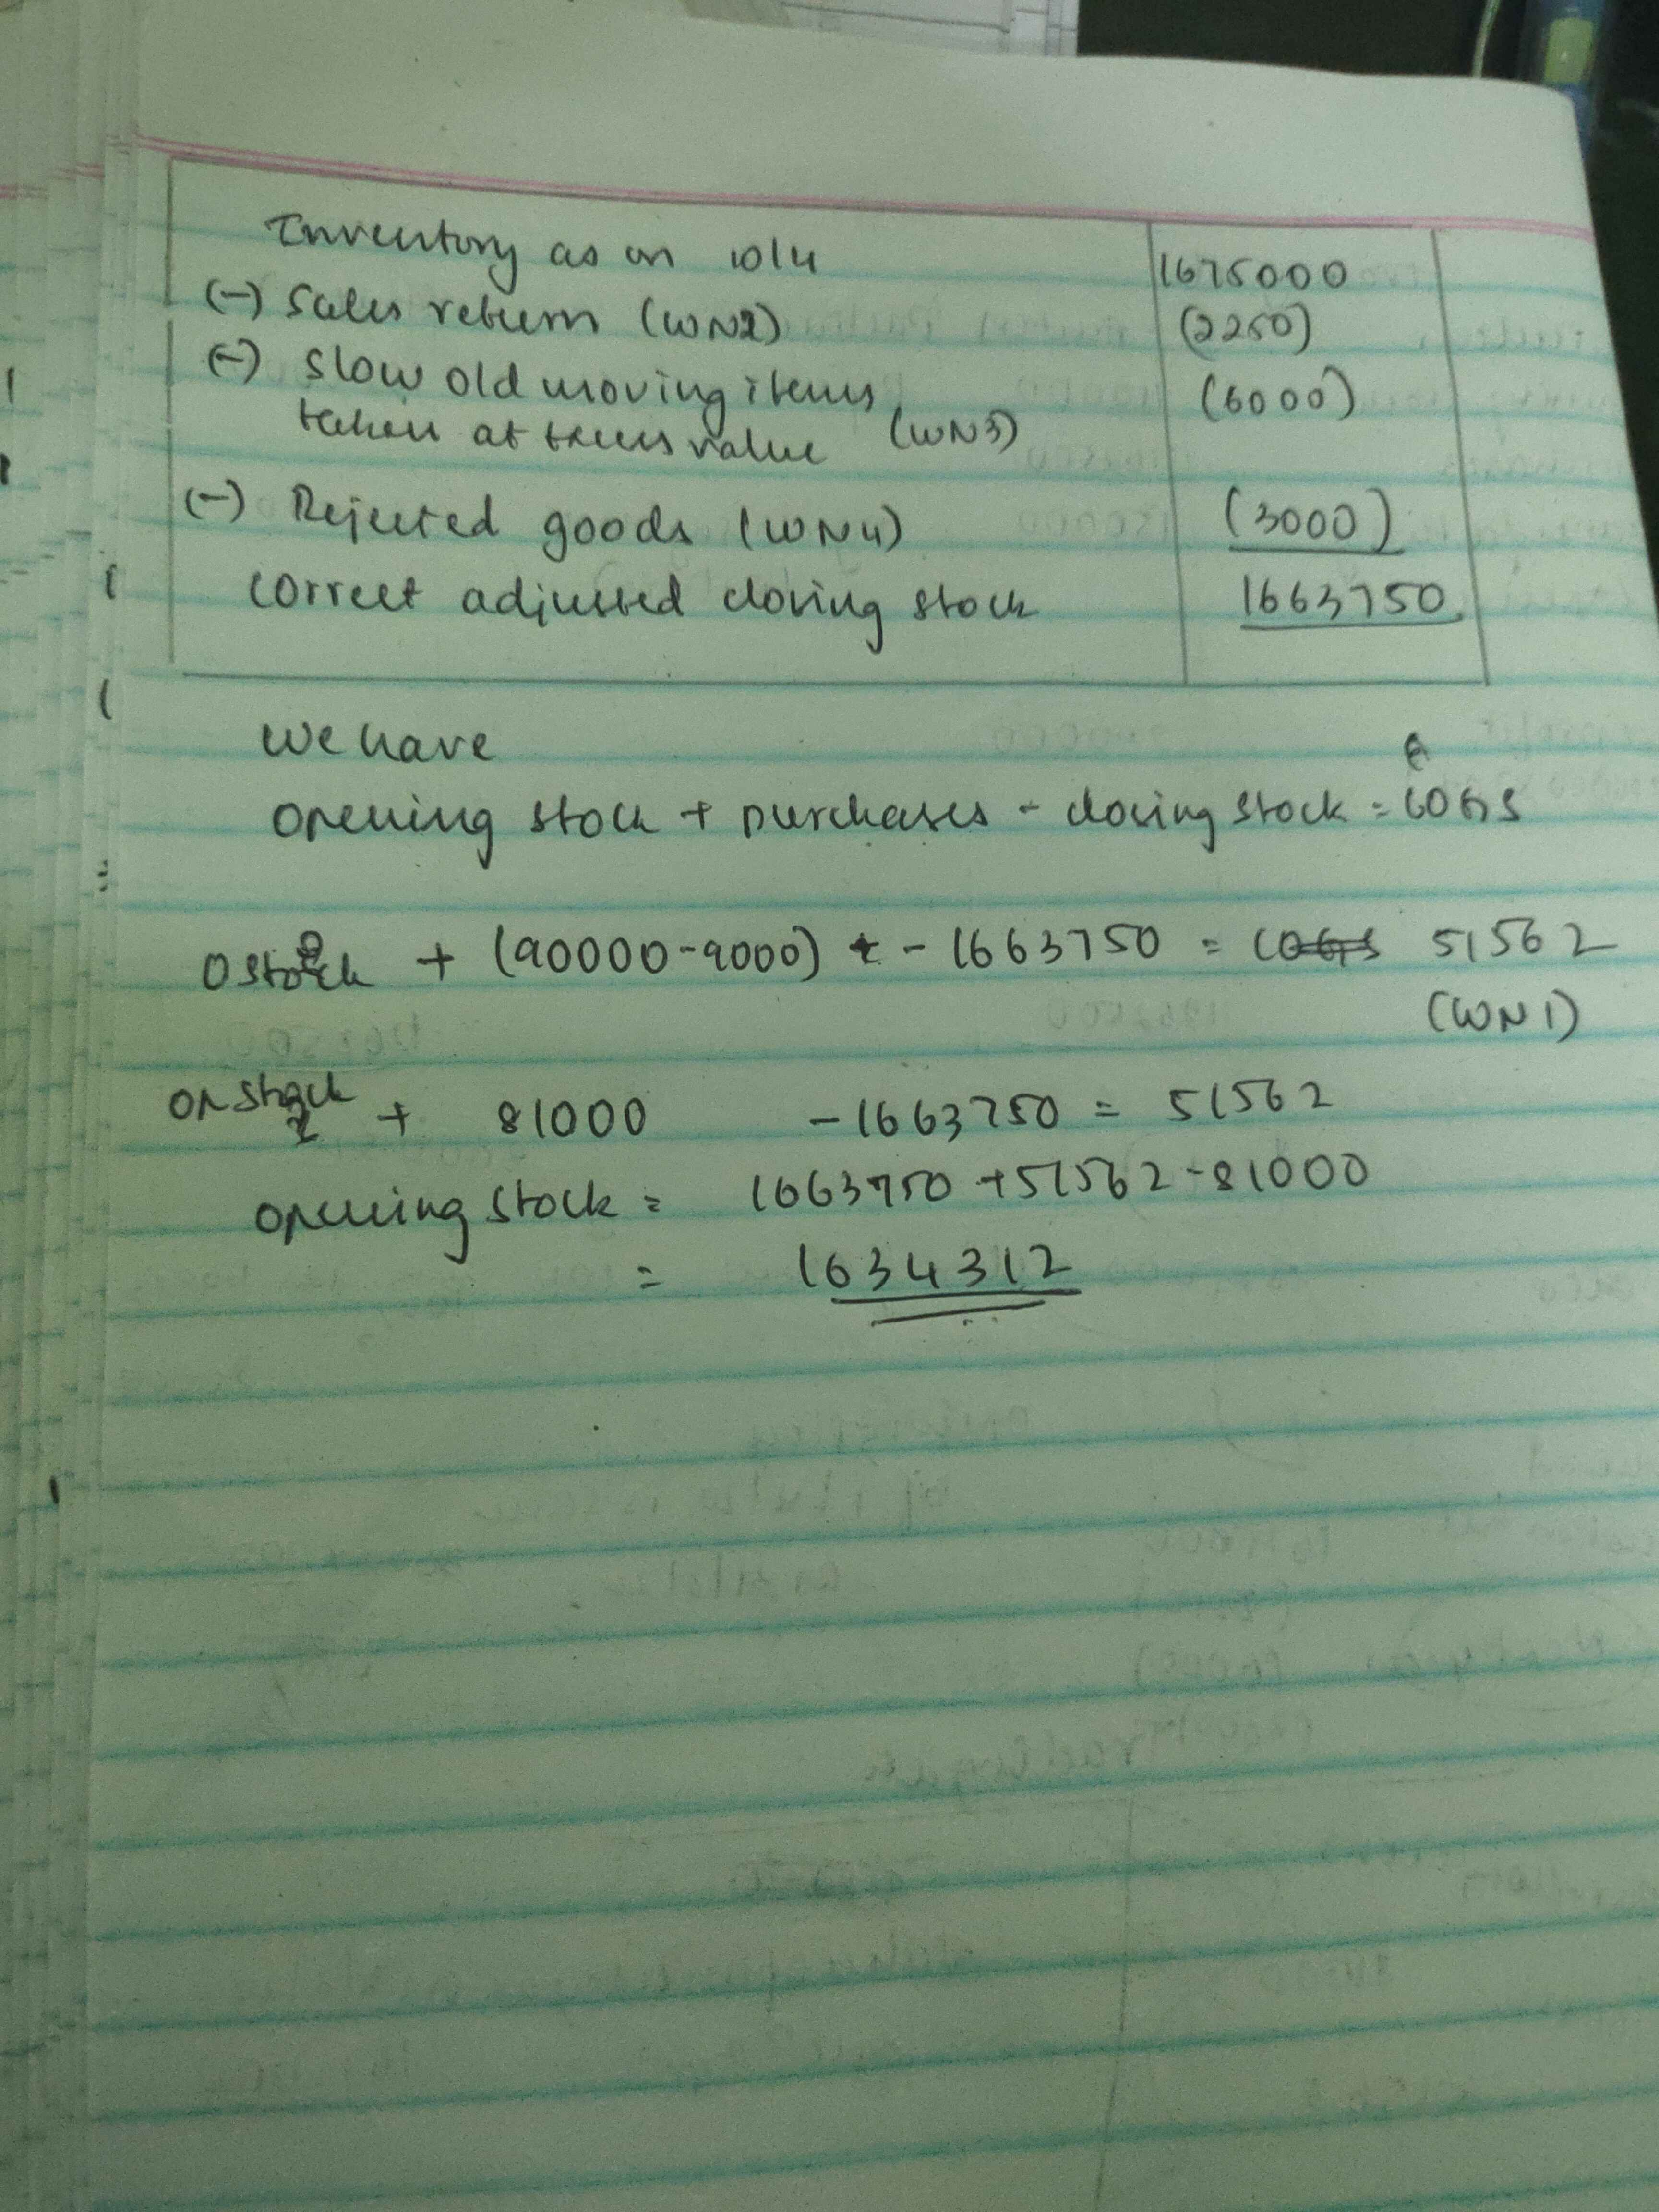 Inventory as on 10/4 1675000
(-) Sales return (WN2) (2250)
(-) Slow old moving items (6000)
taken at value (WN3)
(-) Rejected goods (WN4) (3000)
correct adjusted closing stock 1663750
We have
opening stock + purchases - closing stock = COGS
O stock + (90000-9000) - 1663750 = COGS 51562
(WN1)
op stock + 81000 - 1663750 = 51562
opening stock = 1663750 + 51562 - 81000
= 1634312